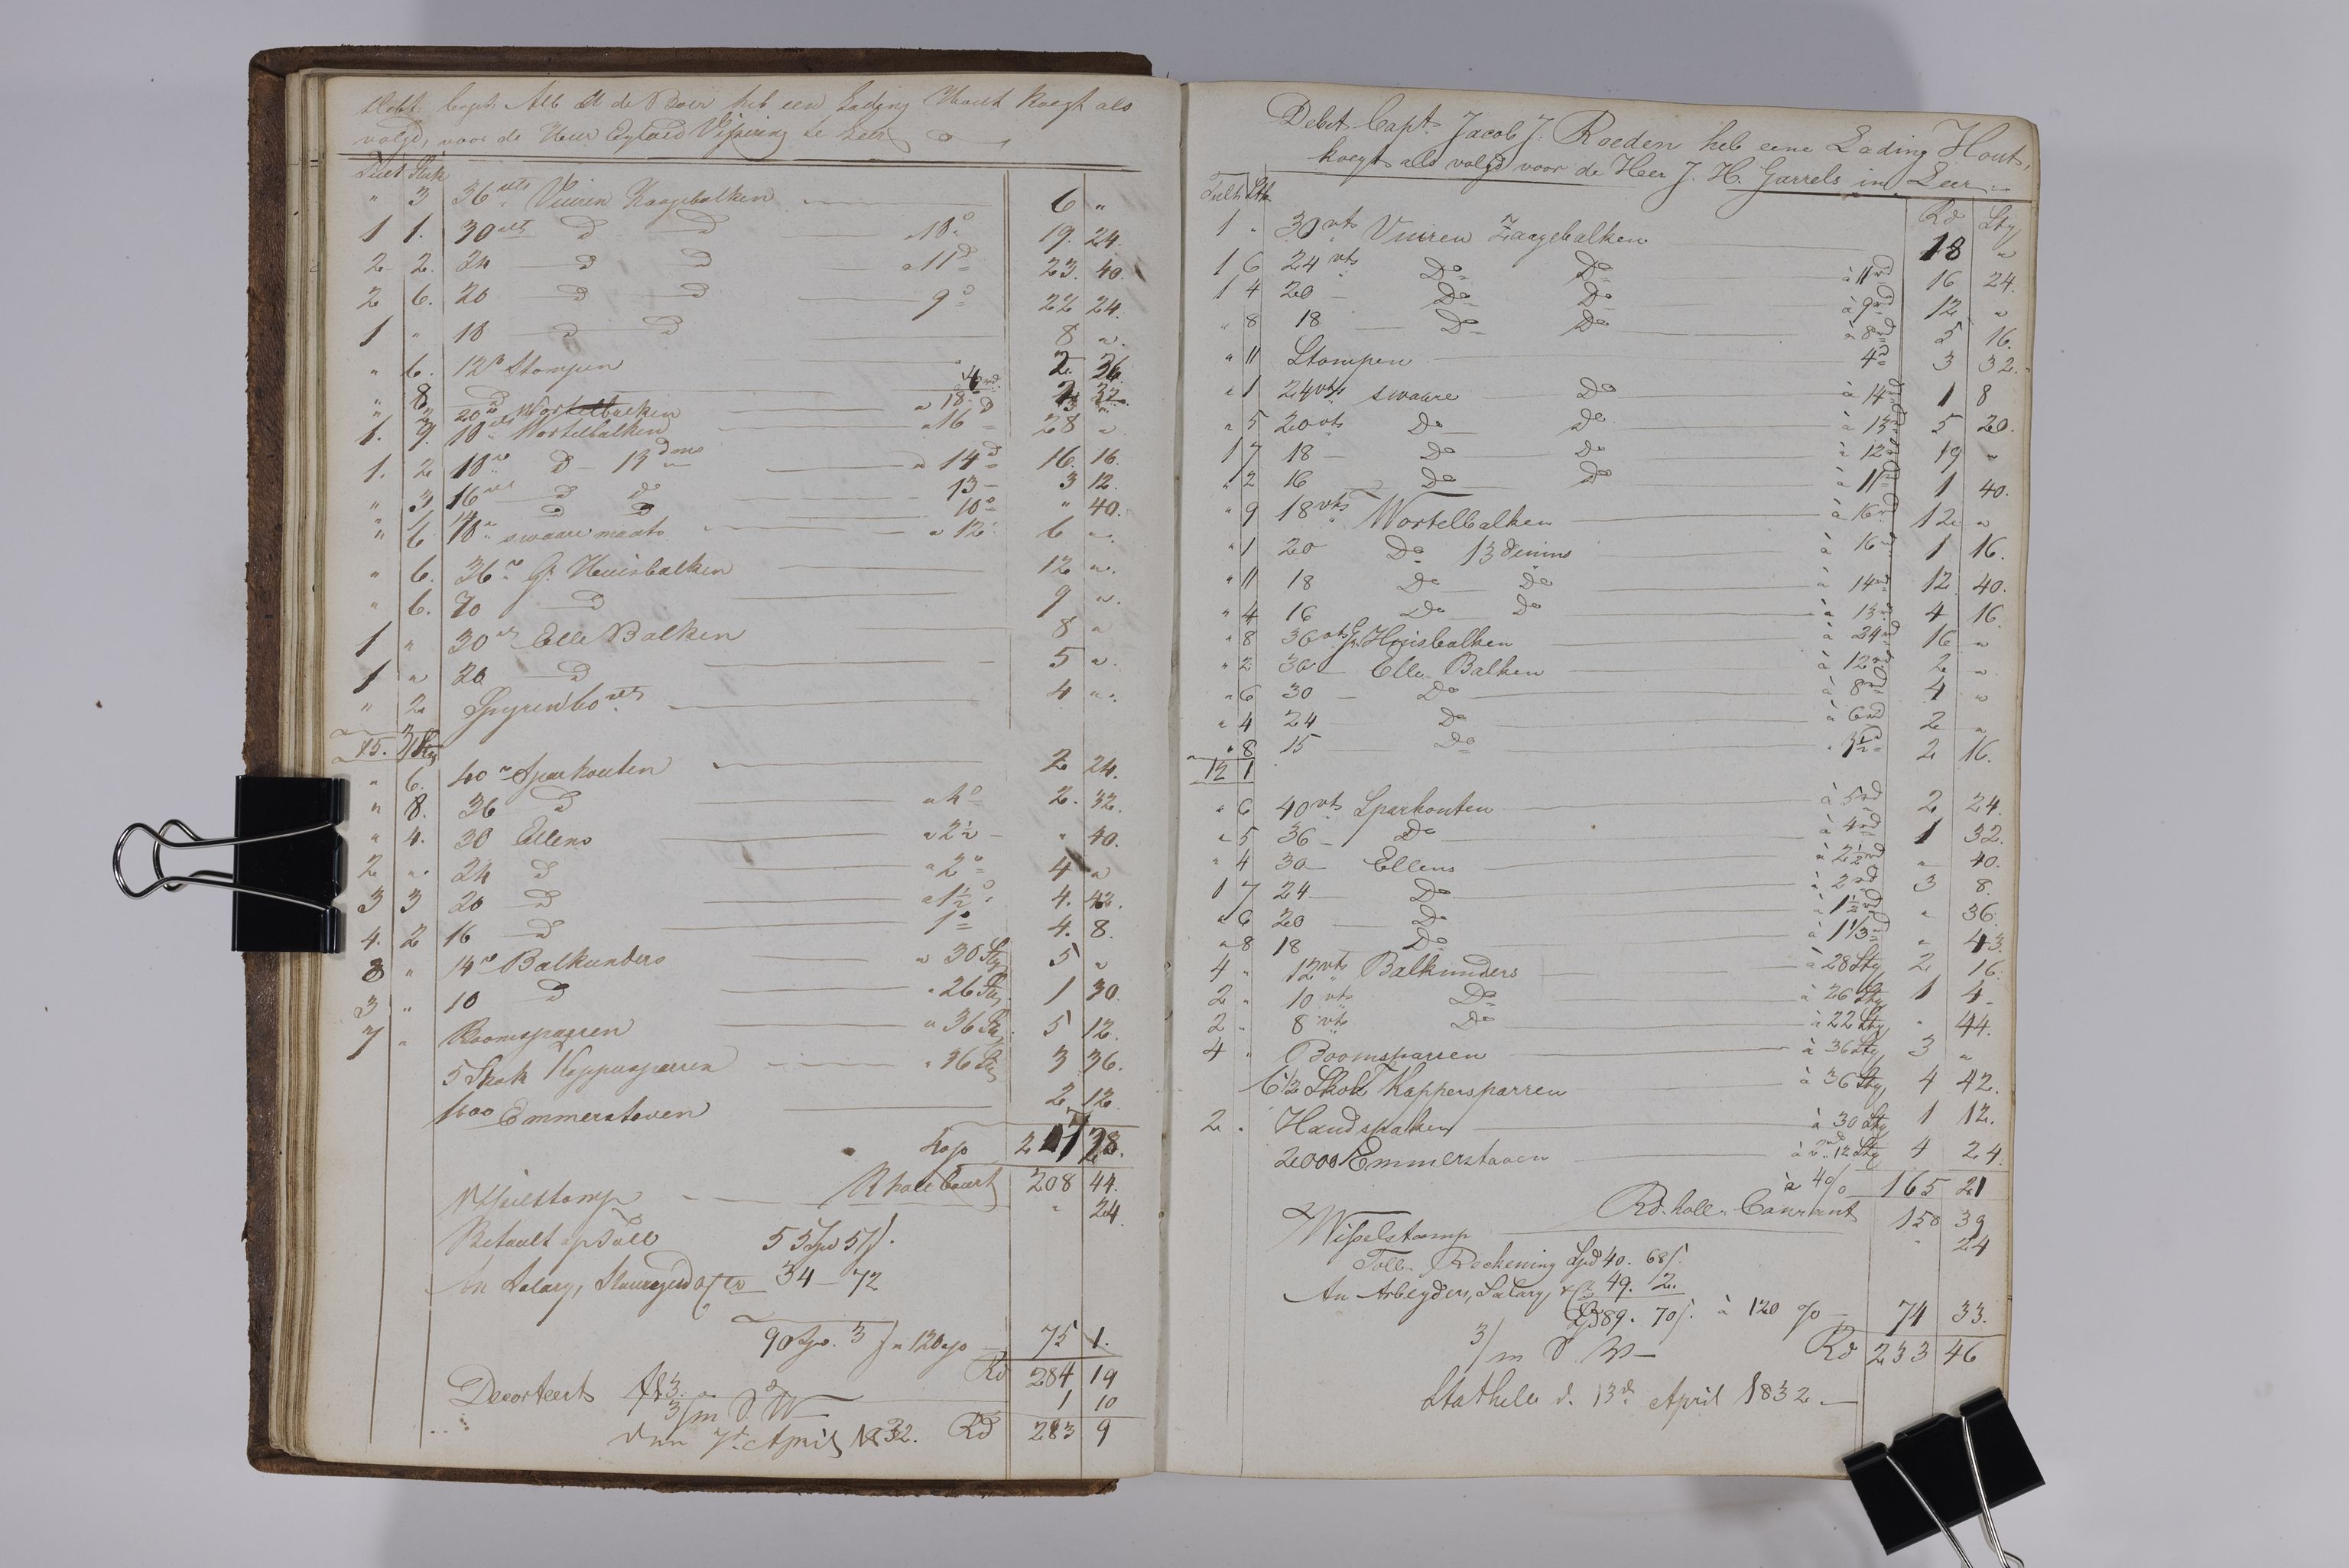 Debt Capt. Alb M de Boer heb een Lading Hout Koegt als
volgd, voor de Heer Eylard Vissering te Leer
Tult Stuk
" 3 36 vts Vuiren Kaagebalken 6 "
1 1. 30 vts D D a 18 D 19. 24.
2 2. 24 D D a 11 D 23. 40.
2 6. 20 D D 9 D 22 24.
1 " 18 D D 8 ".
" 6. 12 Stompen 2. 36
" 8 D 4 rd. 2 32
" 2 20 Wortelbalken a 18. D 3 "
1. 9. 18 vts Wortelbalken a 16 28 "
1. 2 18 D 13 dms a 14 D 16. 16.
" 3 16 vts D Do 13 3 12.
" 1 14 D D 10 D " 40.
" 6 18 swaare maats a 12 6 ".
" 6. 36 Gr. Huisbalken 12 ".
" 6. 30 D 9 ".
1 " 30 vts Elle Balken 8 "
1 " 20 D 5 ".
" 2 Spyren 60 vts 4 ".
15. 3 Stg
" 6. 40 Sparhouten 2 24.
" 8. 36 D a 4 D 2. 32.
" 4. 30 Ellens a 2½ " 40.
2 ". 24 D a 2 D 4 "
3 3 20 D a 1½ D 4. 42.
4. 2 16 D 1 D 4. 8.
8 " 14 Balkunders a 30 Stg 5 "
3 " 10 D a 26 Stg 1 30.
7 " Boomsparren a 36 Stg 5 12.
5 Skok Kappersparren a 36 Stg 3 36.
1000 Emmerstaven 2 12.
4 % 217 28.
Rd holl Courant 208 44.
Wisselstomp " 24.
Betault op Toll 55 Spd 51/.
An Salary, Stauergeld &c 34 – 72
90 Spd. 3/ a 120 % 75 1.
Rd 284 19
Decorteerts 1 10
3/m D. W
den 7d. April 1832. Rd 283 9
Debet Capt. Jacob J. Roeden heb eene Lading Hout,
koegt als volgd voor de Heer J. H. Garrels in Leer
Tult Stk Rd Stg
1 " 30 vts Vuiren Zaagebalken 18 "
1 6 24 vts Do Do à 11 rd 16 24.
1 4 20 – Do Do à 9 rd 12 "
" 8 18 Do Do à 8 rd 5 16.
" 11 Stompen 4 rd 3 32.
" 1 24 vts swaare Do à 14 rd 1 8
" 5 20 vts Do Do à 13 rd 5 20.
1 7 18 – Do Do à 12 rd 19 "
" 2 16 – Do Do à 11 rd 1 40.
" 9 18 vts Wortelbalken à 16 rd 12 "
" 1 20 Do 13 deums à 16 rd 1 16.
" 11 18 Do Do à 14 rd 12 40.
" 4 16 Do Do à 13 rd 4 16.
" 8 36 vts Gr. Huisbalken à 24 rd 16 "
" 2 36 – Elle Balken à 12 rd 2 "
" 6 30 – Do à 8 rd 4 "
" 4 24 Do à 6 rd 2 "
" 8 15 Do 3½ 2 16.
12 1
" 6 40 vts Sparhouten à 5 rd 2 24.
" 5 36 – Do à 4 rd 1 32.
" 4 30 – Ellens à 2½ rd " 40.
1 7 24 – Do à 2 rd 3 8.
" 6 20 Do à 1½ rd " 36.
" 8 18 Do à 1 1/3 " 43.
4 " 12 vts Balkunders à 28 Stg 2 16.
2 " 10 vts Do à 26 Stg 1 4
2 " 8 vts Do à 22 Stg " 44.
4 " Boomsparren à 36 Stg 3 "
6½ Skok Kappersparren à 36 Stg 4 42.
2 " Handspaken à 30 Stg 1 12.
2000 Emmerstaven à 2 rd 12 Stg 4 24.
à 4 % 165 21
Rd. holl. Courant 158 39
Wisselstomp " 24
Toll Reckening Spd 40. 68/.
An Arbeyders, Salary &c 49. 2.
Spd 89. 70/. à 120 % 74 33.
3/m D W – Rd 233 46
Stathelle d. 13d. April 1832.